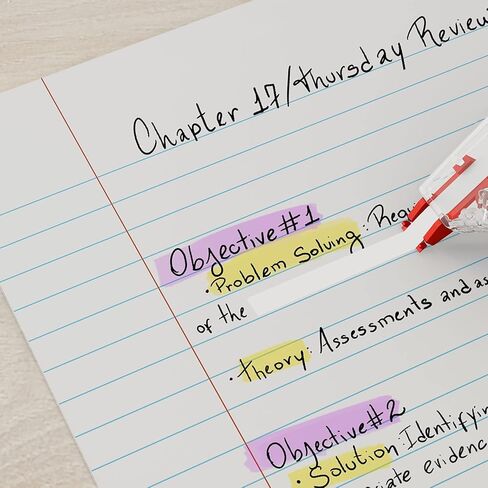 Chapter 17/Thursday Review
Objective#1
• Problem Solving: Requ
of the
• Theory: Assessments and as
Objective#2
• Solution: Identifying
iate evidenc